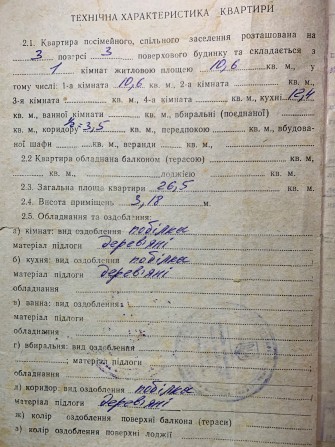 ТЕХНІЧНА ХАРАКТЕРИСТИКА КВАРТИРИ
2.1. Квартира посімейного, спільного заселення розташована на
3 поверсі 3 поверхового будинку та складається з
1 кімнат житловою площею 10,6 кв. м., у
тому числі: 1-а кімната 10,6 кв. м, 2-а кімната кв. м,
3-я кімната кв. м., 4-а кімната кв. м., кухні 12,4
кв. м., ванної кімнати кв. м., вбиральні (поєднаної)
кв. м., коридору 3,5 кв. м., передпокою кв. м., вбудова-
ної шафи кв. м., веранди кв. м.
2.2 Квартира обладнана балконом (терасою) кв. м,
лоджією кв. м.
2.3. Загальна площа квартири 26,5 кв. м.
2.4. Висота приміщень 3,18 м.
2.5. Обладнання та оздоблення:
а) кімнат: вид оздоблення побілка
матеріал підлоги деревяні
б) кухня: вид оздоблення побілка
матеріал підлоги деревяні
обладнання
в) ванна: вид оздоблення
матеріал підлоги
обладнання
г) вбиральня: вид оздоблення
; матеріал підлоги
обладнання
д) коридор: вид оздоблення побілка
матеріал підлоги деревяні
ж) колір оздоблення поверхні балкона (тераси)
з) колір оздоблення поверхні лоджії